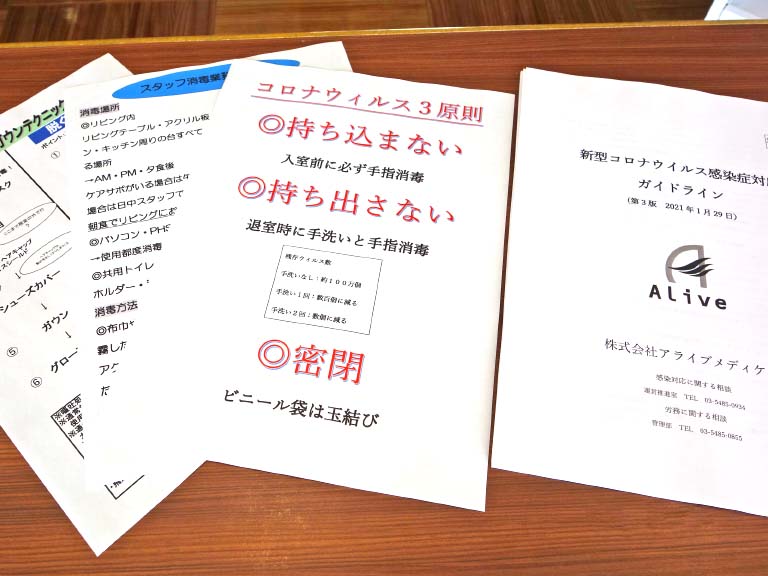 ガウンテクニック
脱
ポイント
①
スク
ヘアキャップ
スシールド
シューズカバー
ガウン
⑤
グロー
⑥
スタッフ消毒業務
消毒場所
◎リビング内
リビングテーブル・アクリル板
ン・キッチン周りの台すべて
る場所
→AM・PM・夕食後
ケアサポがいる場合は
場合は日中スタッフで
朝食でリビングにお
◎パソコン・PH
→使用都度消毒
◎共用トイレ
ホルダー・
消毒方法
◎布巾
霧した
アク
た
コロナウィルス3原則
◎持ち込まない
入室前に必ず手指消毒
◎持ち出さない
退室時に手洗いと手指消毒
残存ウィルス数
手洗いなし:約100万個
手洗い1回:数百個に減る
手洗い2回:数個に減る
◎密閉
ビニール袋は玉結び
新型コロナウイルス感染症対
ガイドライン
(第3版 2021年1月29日)
ALive
株式会社アライブメディケ
感染対応に関する相談
運営推進室 TEL 03-5485-0934
労務に関する相談
管理部 TEL 03-5485-0855